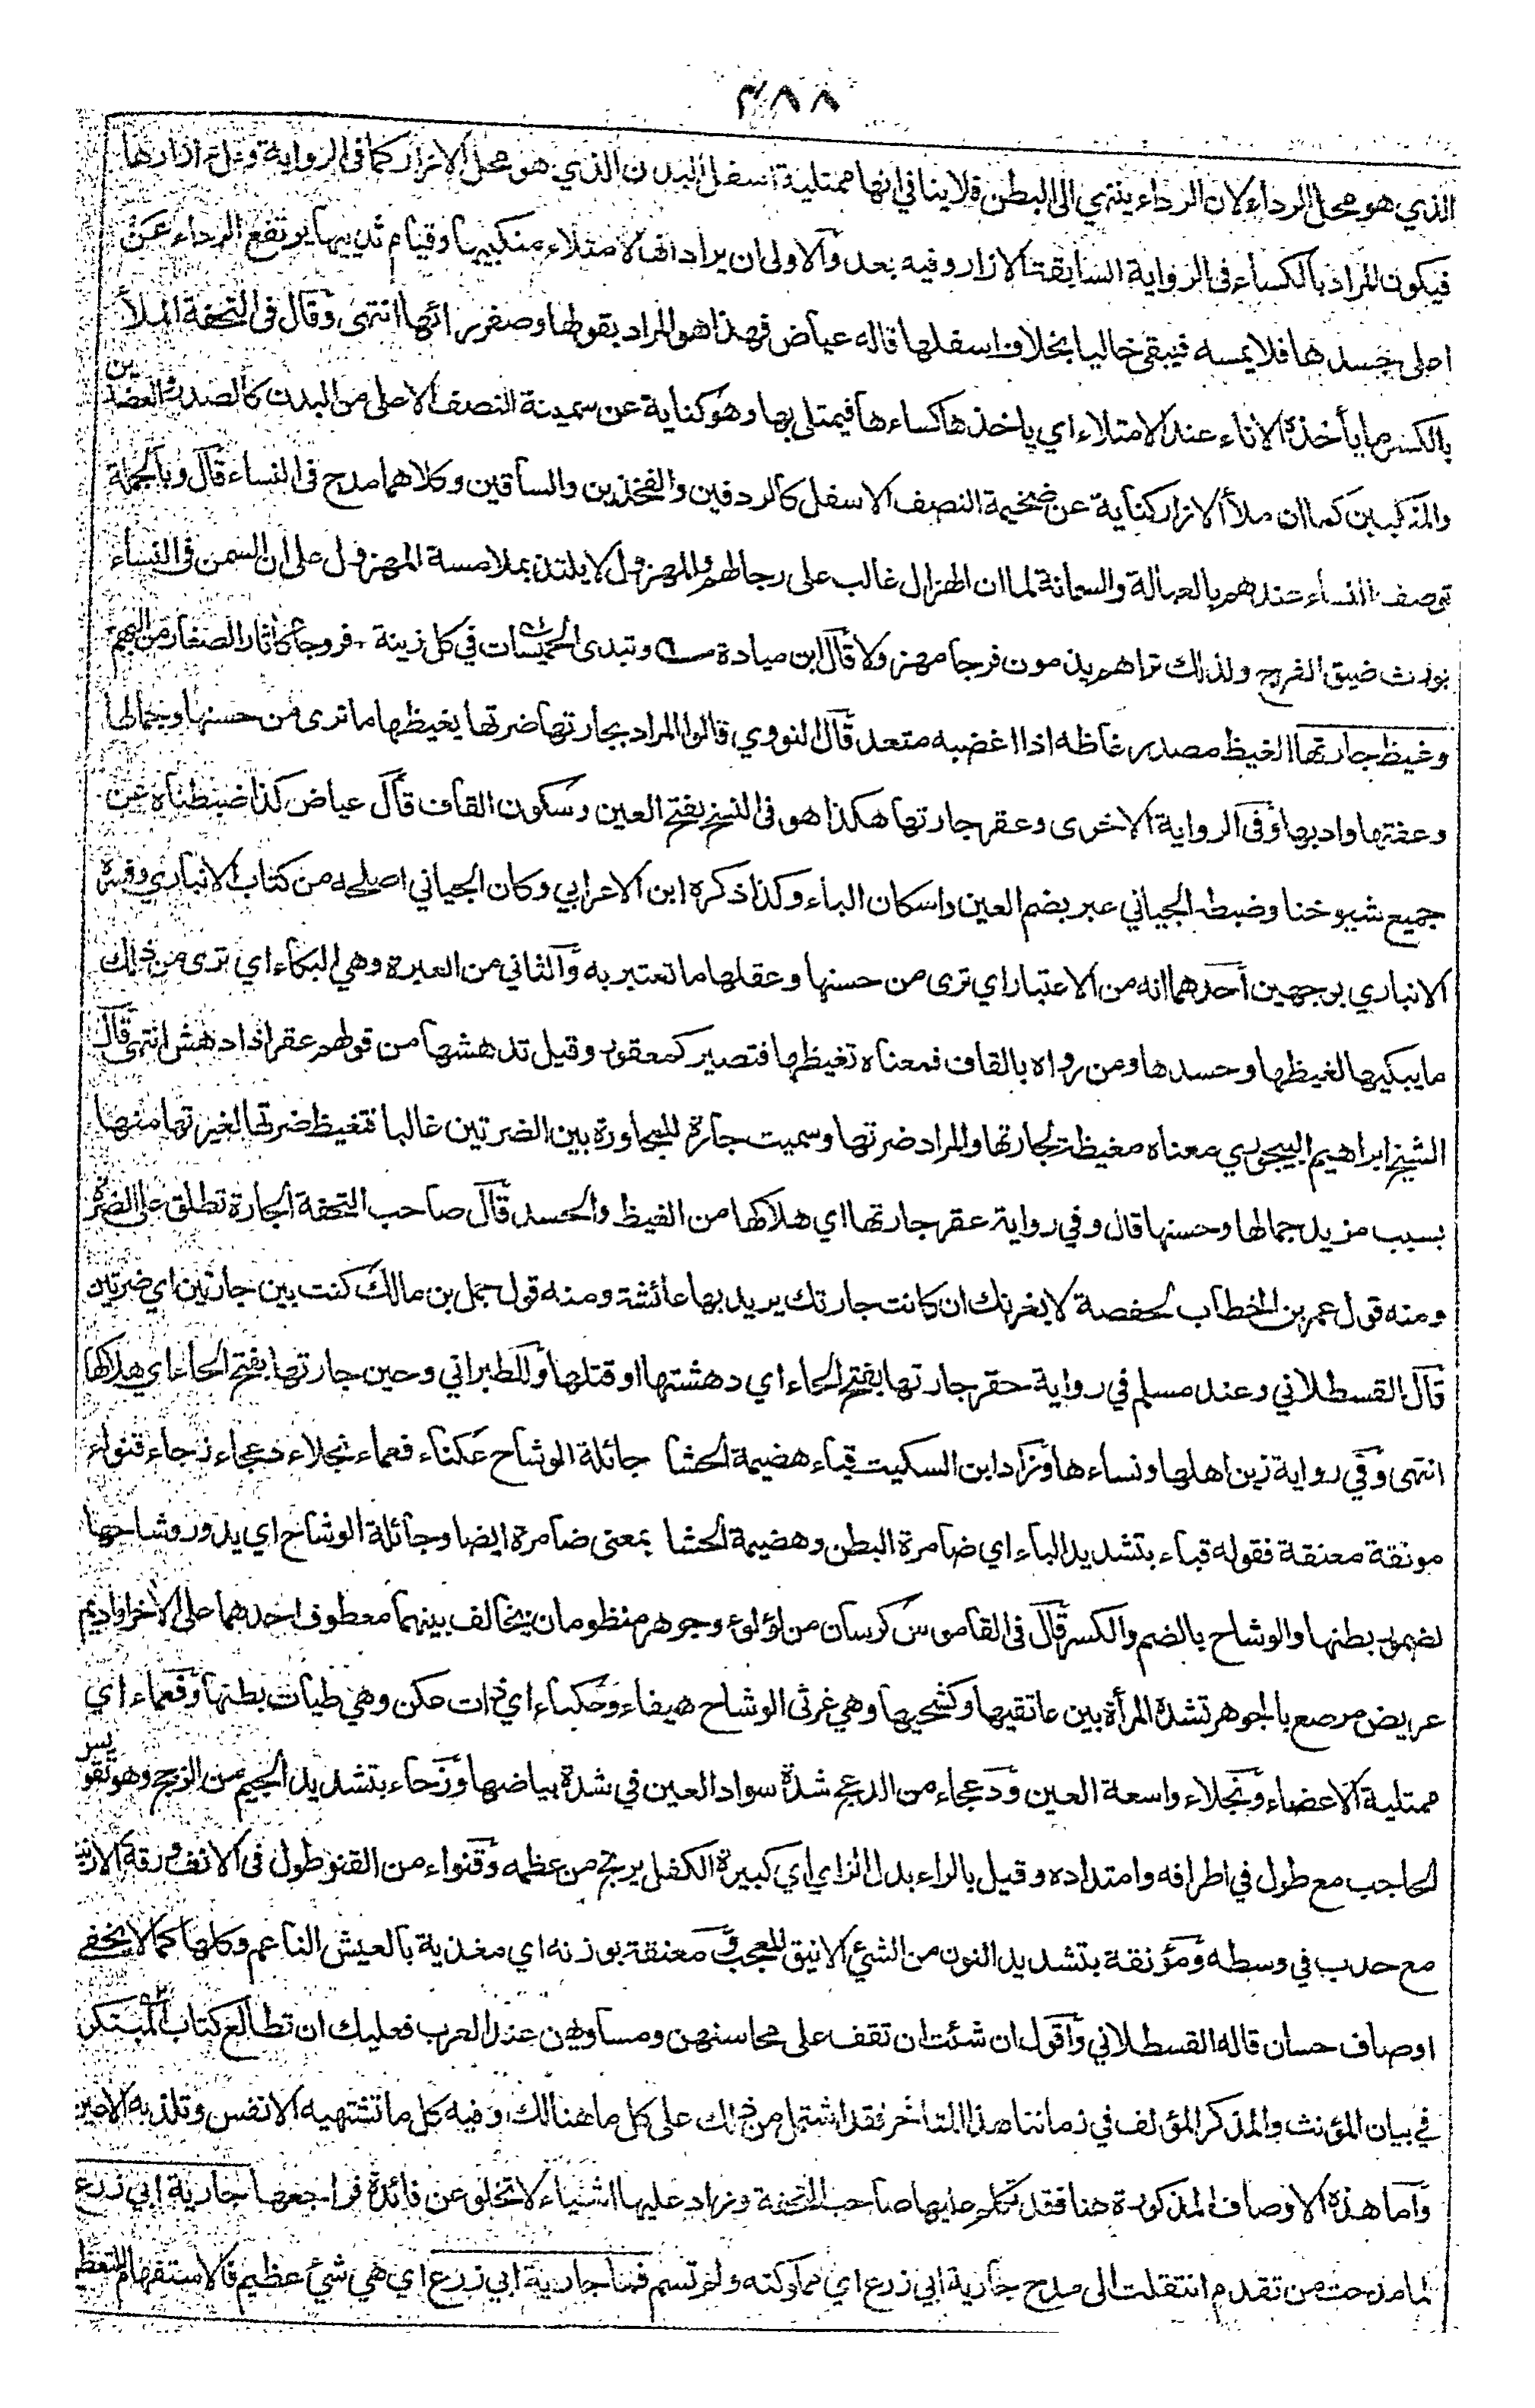 ٣٨٨
الذي هو محل الرداء لان الرداء ينتهي الى البطن فلا ينافي انها ممتلية اسفل البدن الذي هو محل الازار كما في الرواية وملء ازارها
فيكون المراد بالكساء في الرواية السابقة الازار وفيه بعد والاولى ان يراد انه لامتلاء منكبيها وقيام ثدييها يرتفع الرداء عن
اعلى جسدها فلا يمسه فيبقى خاليا بخلاف اسفلها قاله عياض فهذا هو المراد بقولها وصفر ردائها انتهى وقال في التحفة الملأ
بالكسر ما يأخذه الاناء عند الامتلاء اي يأخذها كساءها فيمتلي بها وهو كناية عن سمينة النصف الاعلى من البدن كالصدر والعضدين
والمنكبين كما ان ملأ الازار كناية عن ضخيمة النصف الاسفل كالردفين والفخذين والساقين وكلاهما مدح في النساء قال وبالجملة
توصف النساء عندهم بالعبالة والسمانة لما ان الهزال غالب على رجالهم والمهزول لا يلتذ بملامسة المهزول على ان السمن في النساء
يورث ضيق الفرج ولذلك تراهم يذمون فرجا مهزولا قال ابن ميادة وتبدى الحميسات في كل زينة فروجا كآثار الصغار من البهم
وغيظ جارتها الغيظ مصدر غاظه اذا اغضبه متعد قال النووي قالوا المراد بجارتها ضرتها يغيظها ما ترى من حسنها وجمالها
وعفتها وادبها وفي الرواية الاخرى وعقر جارتها هكذا هو في النسخ بفتح العين وسكون القاف قال عياض كذا ضبطناه عن
جميع شيوخنا وضبطه الجياني عبر بضم العين واسكان الباء وكذا ذكره ابن الاعرابي وكان الجياني اصلحه من كتاب الانباري وفسره
الانباري بوجهين أحدهما انه من الاعتبار اي ترى من حسنها وعقلها ما تعتبر به والثاني من العبرة وهي البكاء اي ترى من ذلك
ما يبكيها لغيظها وحسدها ومن رواه بالقاف فمعناه تغيظها فتصير كمعقور وقيل تدهشها من قولهم عقر اذا دهش انتهى قال
الشيخ ابراهيم البيجوري معناه مغيظة لجارتها والمراد ضرتها وسميت جارة للمجاورة بين الضرتين غالبا فتغيظ ضرتها لغيرتها منها
بسبب مزيد جمالها وحسنها قال وفي رواية عقر جارتها اي هلاكها من الغيظ والحسد قال صاحب التحفة الجارة تطلق على الضرة
ومنه قول عمر بن الخطاب لحفصة لا يغرنك ان كانت جارتك يريد بها عائشة ومنه قول جمل بن مالك كنت بين جارتين اي ضرتين
قال القسطلاني وعند مسلم في رواية حقر جارتها بفتح الحاء اي دهشتها او قتلها وللطبراني وحين جارتها بفتح الحاء اي هلاكها
انتهى وفي رواية زين اهلها ونساءها وزاد ابن السكيت قباء هضيمة الحشا جائلة الوشاح عكناء فعماء نجلاء دعجاء زجاء قنواء
مونقة معنقة فقوله قباء بتشديد الباء اي ضامرة البطن وهضيمة الحشا بمعنى ضامرة ايضا وجائلة الوشاح اي يدور وشاحها
لضمور بطنها والوشاح بالضم والكسر قال في القاموس كرسان من لؤلوء وجوهر منظومان يخالف بينهما معطوف احدهما على الاخر واديم
عريض مرصع بالجوهر تشده المرأة بين عاتقيها وكشحيها وهي غرثى الوشاح هيفاء وعكناء اي ذات عكن وهي طيات بطنها وفعماء اي
ممتلية الاعضاء ونجلاء واسعة العين ودعجاء من الدعج شدة سواد العين في شدة بياضها وزجاء بتشديد الجيم من الزجج وهو تقويس
الحاجب مع طول في اطرافه وامتداده وقيل بالراء بدل الزاي اي كبيرة الكفل يرتج من عظمه وقنواء من القنو طول في الانف ورقة الارنبة
مع حدب في وسطه ومؤنقة بتشديد النون من الشئ الانيق المعجب ومعنقة بوزنه اي مغذية بالعيش الناعم وكلها كما لا يخفى
اوصاف حسان قاله القسطلاني واقول ان شئت ان تقف على محاسنهن ومساويهن عند العرب فعليك ان تطالع كتاب المبتكر
في بيان المؤنث والمذكر المؤلف في زماننا هذا المتأخر فقد اشتمل من ذلك على كل ما هنالك وفيه كل ما تشتهيه الانفس وتلذ به الاعين
واما هذه الاوصاف المذكورة هنا فقد تكلم عليها صاحب التحفة وزاد عليها اشياء لا تخلو عن فائدة فراجعها جارية ابي زرع
لما مدحت من تقدم انتقلت الى مدح جارية ابي زرع اي مملوكته ولم تسم فما جارية ابي زرع اي هي شئ عظيم فالاستفهام للتعظيم